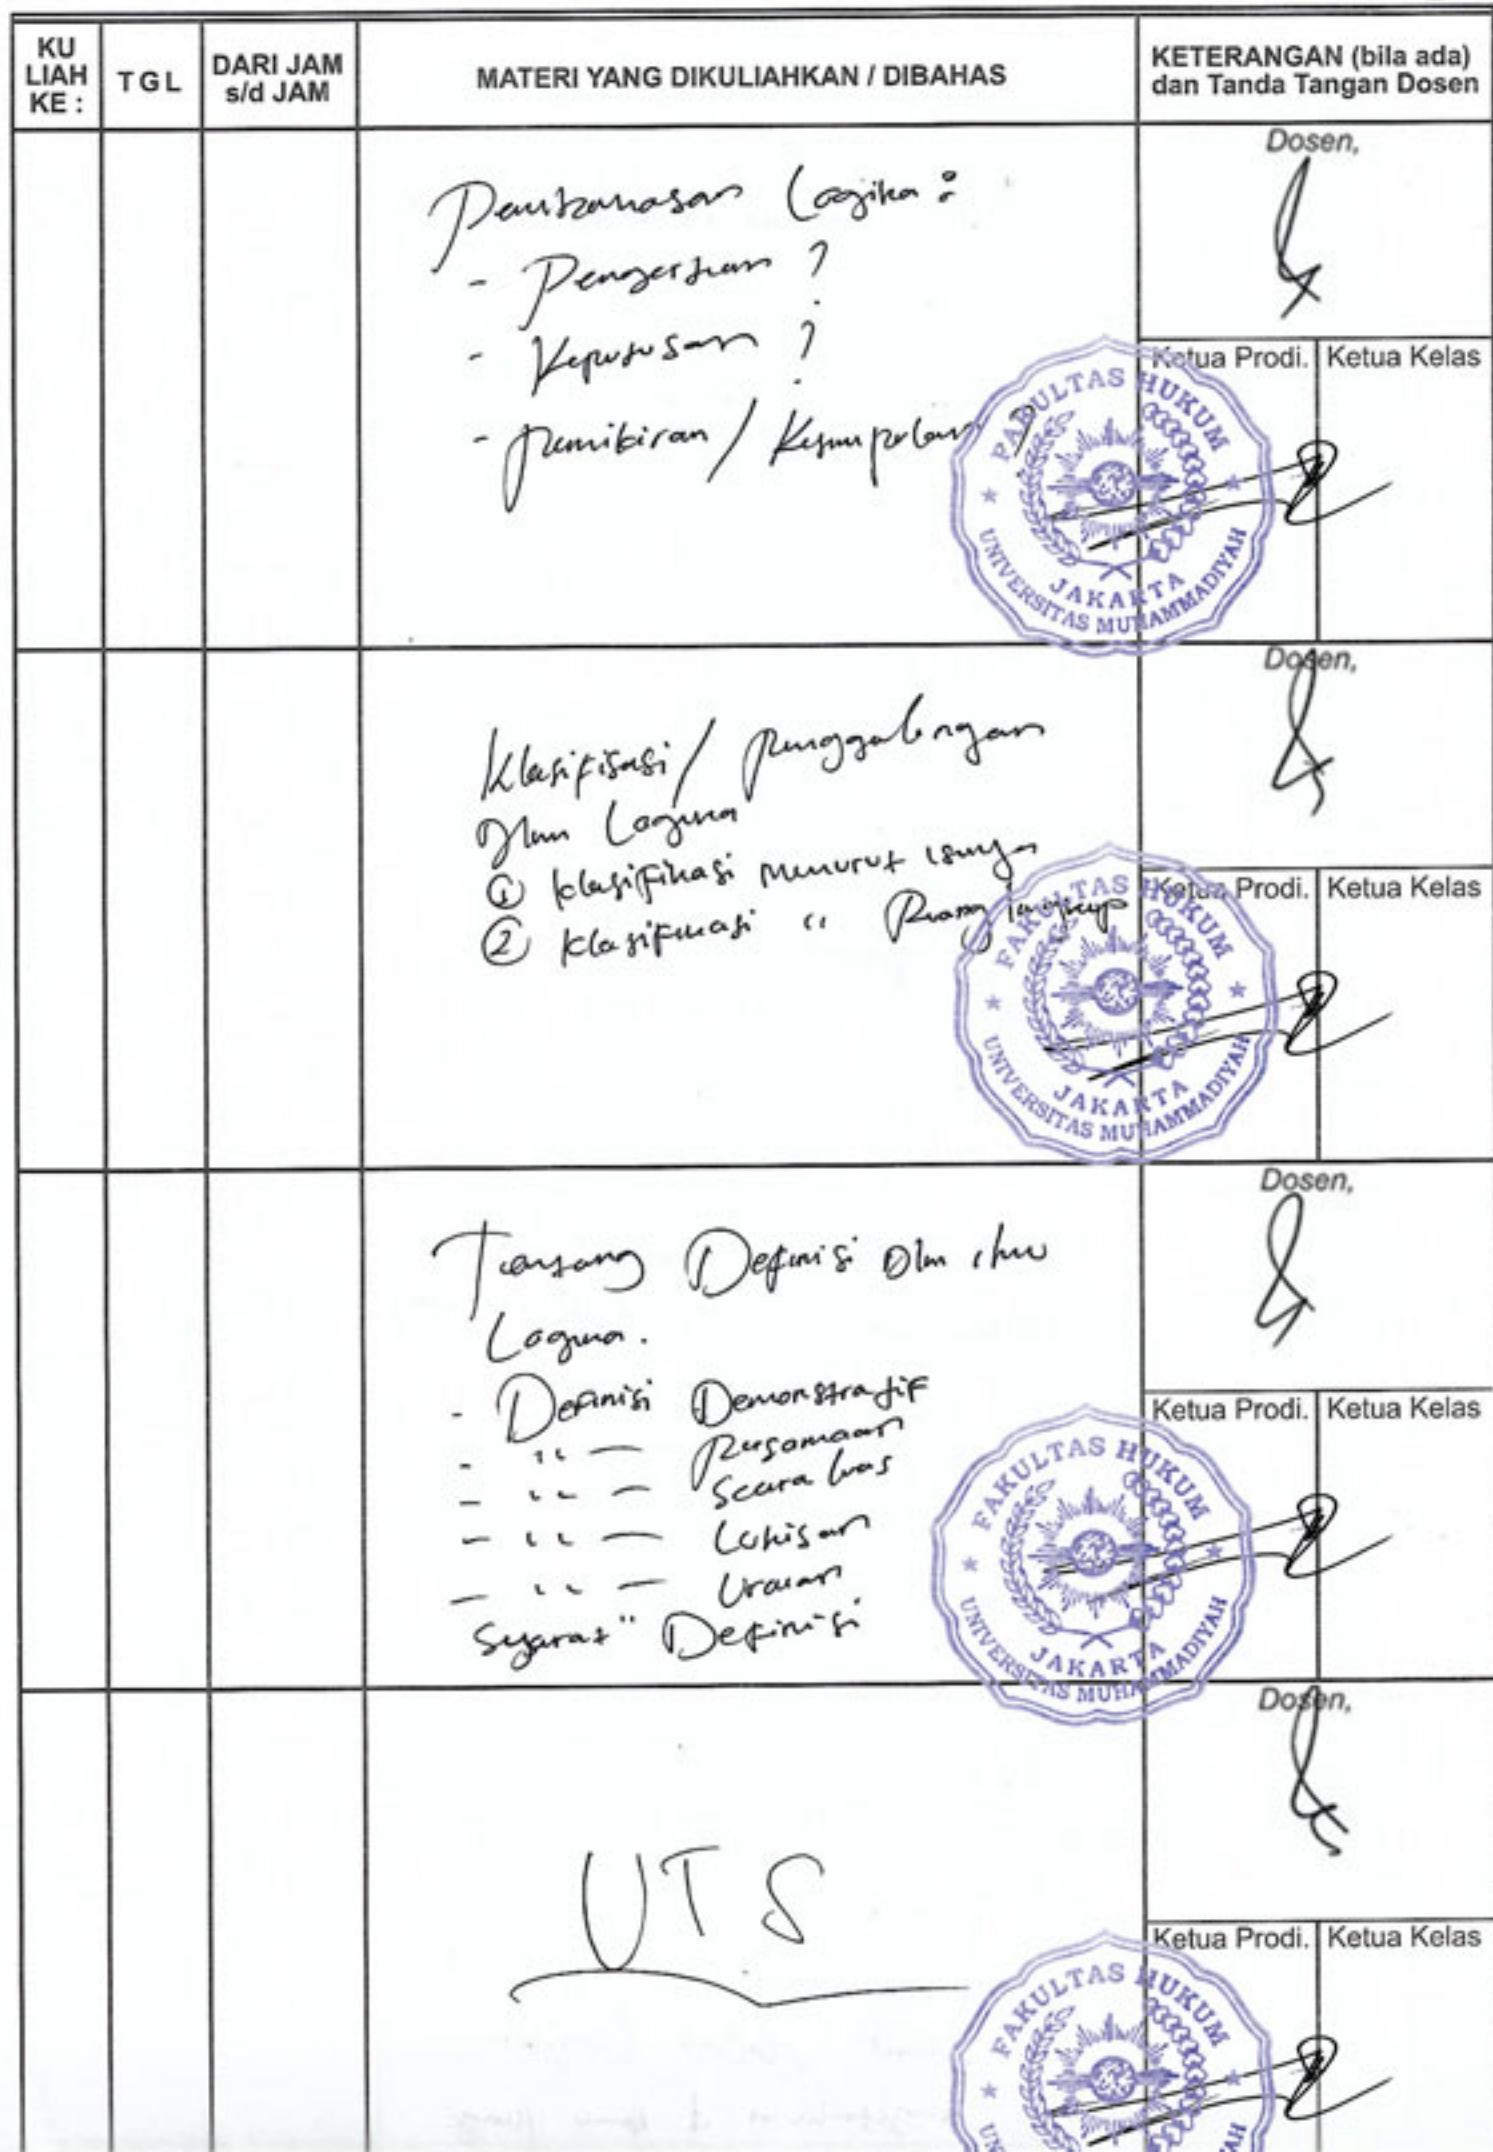 KU LIAH KE :
TGL
DARI JAM s/d JAM
MATERI YANG DIKULIAHKAN / DIBAHAS
KETERANGAN (bila ada) dan Tanda Tangan Dosen
Pembahasan Logika :
- Pengertian ?
- Keputusan ?
- Pemikiran / Kesimpulan ?
Dosen,
Ketua Prodi.
Ketua Kelas
FAKULTAS HUKUM
UNIVERSITAS MUHAMMADIYAH
JAKARTA
Klasifikasi / Penggolongan
Dlm Logika
① klasifikasi menurut isinya
② klasifikasi " Ruang lingkup
Dosen,
Ketua Prodi.
Ketua Kelas
FAKULTAS HUKUM
UNIVERSITAS MUHAMMADIYAH
JAKARTA
Tentang Definisi Dlm ilmu
Logika.
- Definisi Demonstratif
- " — Persamaan
- " — Secara luas
- " — Lukisan
- " — Uraian
Syarat" Definisi
Dosen,
Ketua Prodi.
Ketua Kelas
FAKULTAS HUKUM
UNIVERSITAS MUHAMMADIYAH
JAKARTA
UTS
Dosen,
Ketua Prodi.
Ketua Kelas
FAKULTAS HUKUM